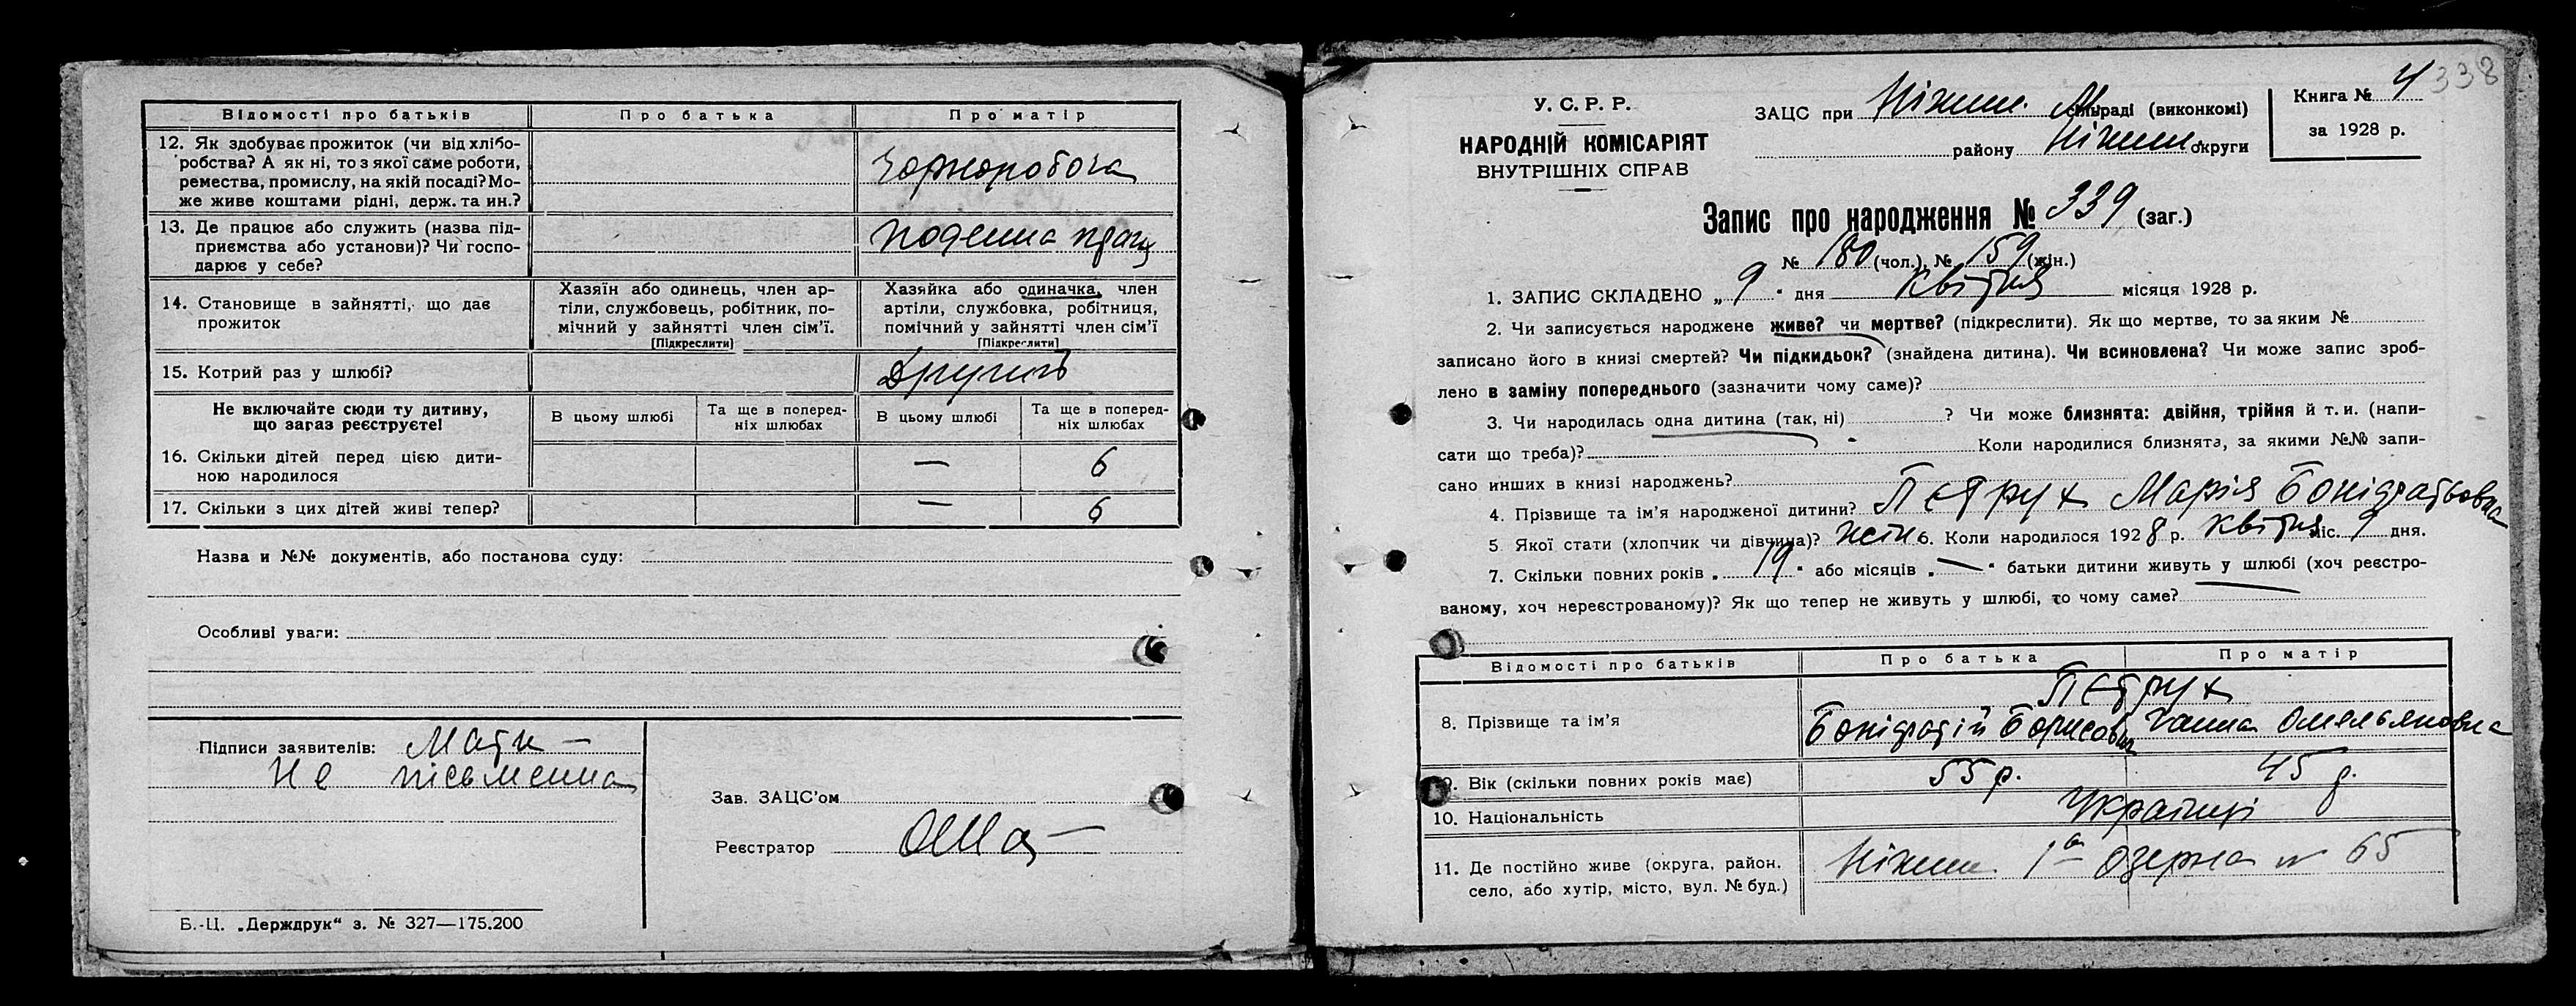 Відомості про батьків Про батька Про матір
12. Як здобуває прожиток (чи від хлібо-
робства? А як ні, то з якої саме роботи,
ремества, промислу, на якій посаді? Мо-
же живе коштами рідні, держ. та ин.?
Чорноробоча
13. Де працює або служить (назва під-
приємства або установи)? Чи госпо-
дарює у себе?
Поденна праця
14. Становище в зайнятті, що дає
прожиток
Хазяїн або одинець, член ар-
тіли, службовець, робітник, по-
мічний у зайнятті член сім'ї.
[Підкреслити]
Хазяйка або одиначка, член
артіли, службовка, робітниця,
помічний у зайнятті член сім'ї
[Підкреслити]
15. Котрий раз у шлюбі?
Другий
Не включайте сюди ту дитину,
що зараз реєструєте!
В цьому шлюбі
Та ще в поперед-
ніх шлюбах
В цьому шлюбі
Та ще в поперед-
ніх шлюбах
16. Скільки дітей перед цією дити-
ною народилося
— 6
17. Скільки з цих дітей живі тепер? — 6
Назва и №№ документів, або постанова суду:
Особливі уваги:
Підписи заявителів: Мати —
не письменна
Зав. ЗАЦС'ом
Реєстратор
Б.-Ц. „Держдрук“ з. № 327—175.200
338
У. С. Р. Р.
НАРОДНІЙ КОМІСАРІЯТ
ВНУТРІШНІХ СПРАВ
ЗАЦС при Ніжин. М. сільраді (виконкомі)
району Ніжин. округи
Книга № 4
за 1928 р.
Запис про народження № 339 (заг.)
№ 180 (чол.), № 159 (жін.)
1. ЗАПИС СКЛАДЕНО „ 9 “ дня квітня місяця 1928 р.
2. Чи записується народжене живе? чи мертве? (підкреслити). Як що мертве, то за яким №
записано його в книзі смертей? Чи підкидьок? (знайдена дитина). Чи всиновлена? Чи може запис зроб-
лено в заміну попереднього (зазначити чому саме)?
3. Чи народилась одна дитина (так, ні) ? Чи може близнята: двійня, трійня й т. и. (напи-
сати що треба)? Коли народилися близнята, за якими №№ запи-
сано инших в книзі народжень?
4. Прізвище та ім'я народженої дитини? Петрух Марія Боніфатьовна
5 Якої стати (хлопчик чи дівчина)? жін. 6. Коли народилося 1928 р. квітня міс. 9 дня.
7. Скільки повних років „ 19 “ або місяців „ — “ батьки дитини живуть у шлюбі (хоч реєстро-
ваному, хоч нереєстрованому)? Як що тепер не живуть у шлюбі, то чому саме?
Відомості про батьків Про батька Про матір
Петрух
8. Прізвище та ім'я Боніфатій Борисович Ганна Омельяновна
9. Вік (скільки повних років має) 55 р. 45 р.
10. Національність Українці
11. Де постійно живе (округа, район,
село, або хутір, місто, вул. № буд.)
Ніжин. 1а Озерна № 65